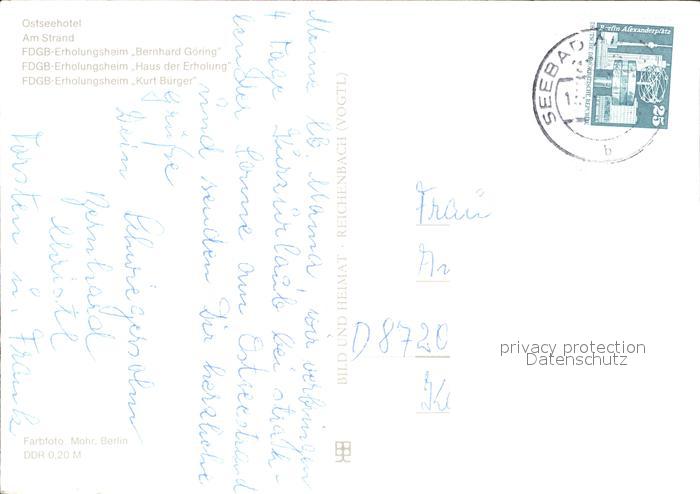 Ostseehotel
Am Strand
FDGB-Erholungsheim „Bernhard Göring"
FDGB-Erholungsheim „Haus der Erholung"
FDGB-Erholungsheim „Kurt Bürger"
Meine lb Mama wir verbringen
4 Tage Kurzurlaub bei strah-
lender Sonne am Ostseestrand
und senden Dir herzliche
Grüße
Dein Schwiegersohn
Bernhard
Christl
Torsten u. Frank
Farbfoto, Mohr, Berlin
DDR 0,20 M
BILD UND HEIMAT · REICHENBACH (VOGTL)
SEEBAD
b
Berlin Alexanderplatz
25
Frau
An
D8720
privacy protection
Datenschutz